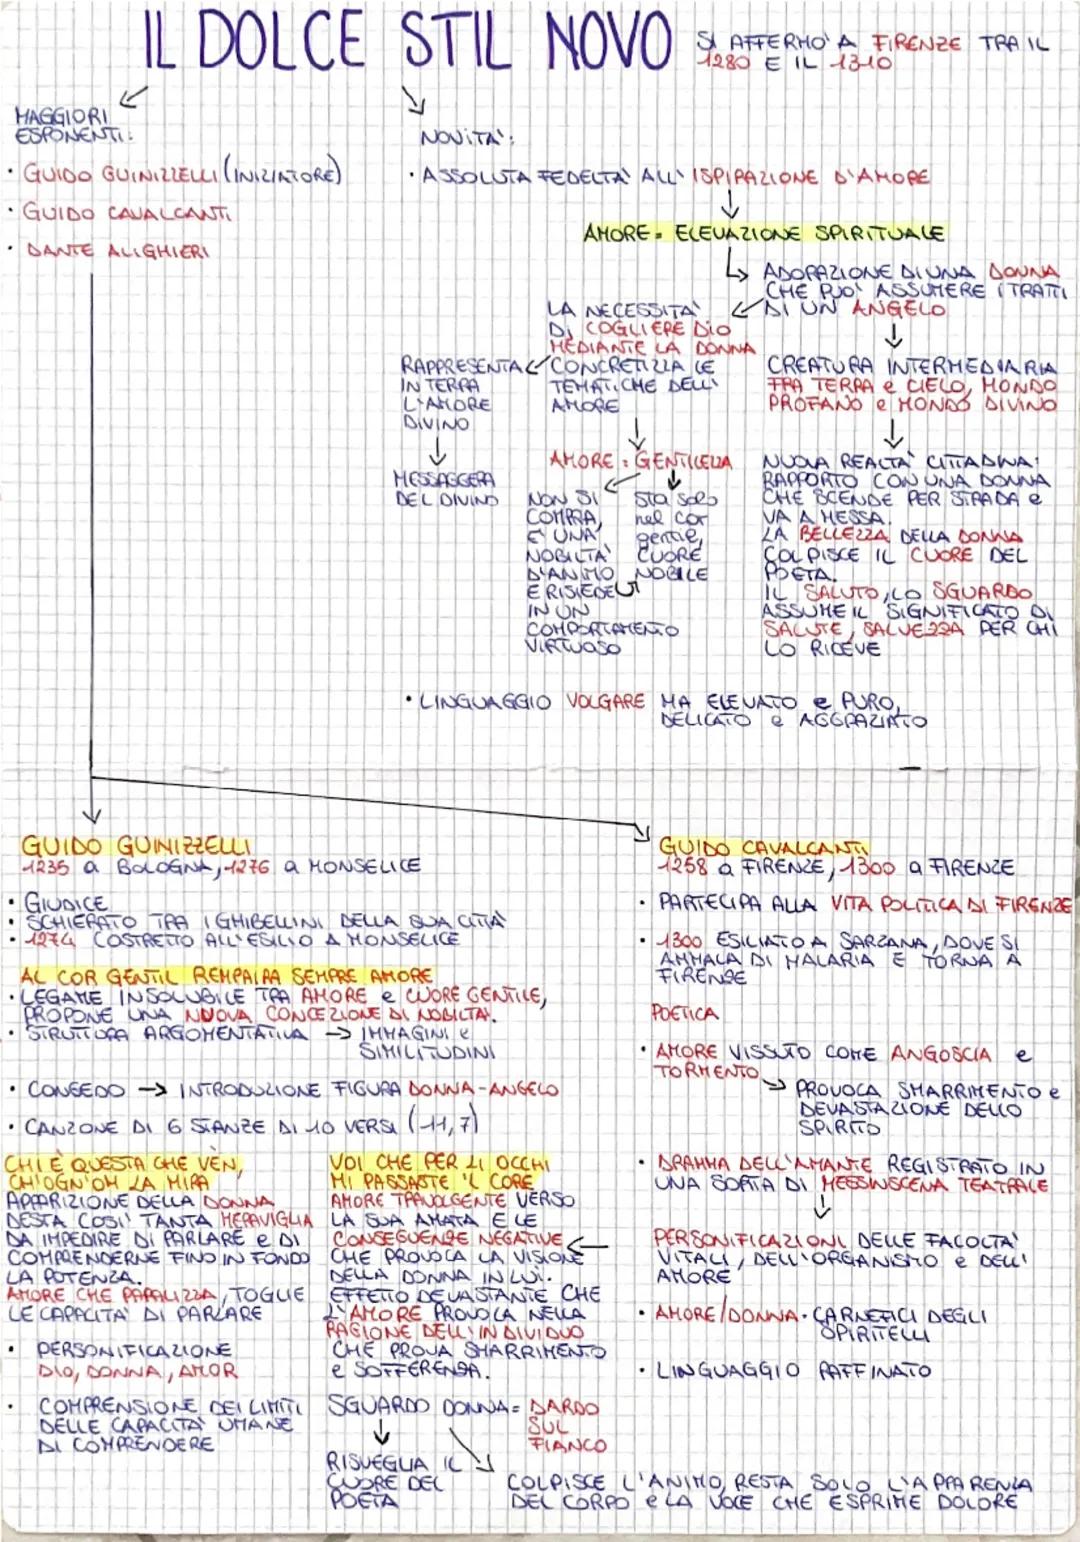 IL DOLCE STIL NOVO
SI AFFERMO' A FIRENZE TRA IL
1280 E IL 1310
MAGGIORI
ESPONENTI:
· GUIDO GUINIZZELLI (INIZIATORE)
· GUIDO CAVALCANTI
· DANTE ALIGHIERI
NOVITA':
· ASSOLUTA FEDELTA' ALL' ISPIRAZIONE D'AMORE
AMORE = ELEVAZIONE SPIRITUALE
ADORAZIONE DI UNA DONNA
CHE PUO' ASSUMERE I TRATTI
DI UN ANGELO
LA NECESSITA'
DI COGLIERE DIO
MEDIANTE LA DONNA
CONCRETIZZA LE
TEMATICHE DELL'
AMORE
RAPPRESENTA
IN TERRA
L'AMORE
DIVINO
MESSAGGERA
DEL DIVINO
CREATURA INTERMEDIARIA
FRA TERRA e CIELO, MONDO
PROFANO e MONDO DIVINO
AMORE = GENTILEZZA
NON SI
COMPRA,
E' UNA
NOBILTA'
D'ANIMO
E RISIEDE
IN UN
COMPORTAMENTO
VIRTUOSO
sta solo
nel cor
gentile,
CUORE
NOBILE
NUOVA REALTA' CITTADINA:
RAPPORTO CON UNA DONNA
CHE SCENDE PER STRADA e
VA A MESSA.
LA BELLEZZA DELLA DONNA
COLPISCE IL CUORE DEL
POETA.
IL SALUTO, LO SGUARDO
ASSUME IL SIGNIFICATO DI
SALUTE, SALVEZZA PER CHI
LO RICEVE
· LINGUAGGIO VOLGARE MA ELEVATO e PURO,
DELICATO e AGGRAZIATO
GUIDO GUINIZZELLI
1235 a BOLOGNA, 1276 a MONSELICE
· GIUDICE
· SCHIERATO TRA I GHIBELLINI DELLA SUA CITTA'
· 1274 COSTRETTO ALL'ESILIO A MONSELICE
AL COR GENTIL REMPAIRA SEMPRE AMORE
· LEGAME INSOLUBILE TRA AMORE e CUORE GENTILE,
PROPONE UNA NUOVA CONCEZIONE DI NOBILTA'.
· STRUTTURA ARGOMENTATIVA → IMMAGINI e
SIMILITUDINI
· CONGEDO → INTRODUZIONE FIGURA DONNA-ANGELO
· CANZONE DI 6 STANZE DI 10 VERSI (11,7)
GUIDO CAVALCANTI
1258 a FIRENZE, 1300 a FIRENZE
· PARTECIPA ALLA VITA POLITICA DI FIRENZE
· 1300 ESILIATO A SARZANA, DOVE SI
AMMALA DI MALARIA E TORNA A
FIRENZE
POETICA
· AMORE VISSUTO COME ANGOSCIA e
TORMENTO
PROVOCA SMARRIMENTO e
DEVASTAZIONE DELLO
SPIRITO
· DRAMMA DELL'AMANTE REGISTRATO IN
UNA SORTA DI MESSINSCENA TEATRALE
PERSONIFICAZIONI DELLE FACOLTA'
VITALI, DELL'ORGANISMO e DELL'
AMORE
· AMORE/DONNA = CARNEFICI DEGLI
SPIRITELLI
· LINGUAGGIO RAFFINATO
CHI È QUESTA CHE VÈN,
CH'OGN'OM LA MIRA
APPARIZIONE DELLA DONNA
DESTA COSI' TANTA MERAVIGLIA
DA IMPEDIRE DI PARLARE e DI
COMPRENDERNE FINO IN FONDO
LA POTENZA.
AMORE CHE PARALIZZA, TOGLIE
LE CAPACITA' DI PARLARE
· PERSONIFICAZIONE
DIO, DONNA, AMOR
· COMPRENSIONE DEI LIMITI
DELLE CAPACITA' UMANE
DI COMPRENDERE
VOI CHE PER LI OCCHI
MI PASSASTE 'L CORE
AMORE TRAVOLGENTE VERSO
LA SUA AMATA E LE
CONSEGUENZE NEGATIVE
CHE PROVOCA LA VISIONE
DELLA DONNA IN LUI.
EFFETTO DEVASTANTE CHE
L'AMORE PROVOCA NELLA
RAGIONE DELL'INDIVIDUO
CHE PROVA SMARRIMENTO
e SOFFERENZA.
SGUARDO DONNA = DARDO
SUL
FIANCO
RISVEGLIA IL
CUORE DEL
POETA
COLPISCE L'ANIMO, RESTA SOLO L'APPARENZA
DEL CORPO e LA VOCE CHE ESPRIME DOLORE